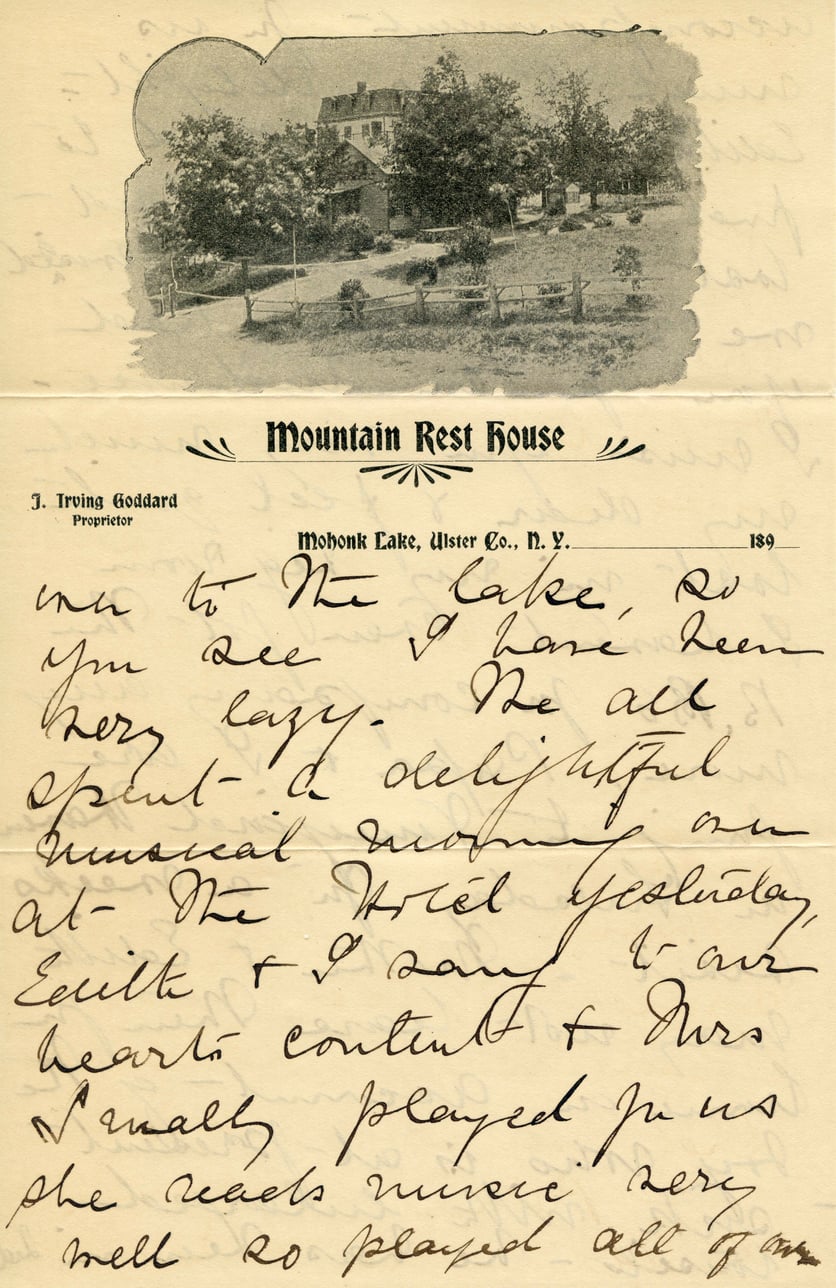 Mountain Rest House
J. Irving Goddard
Proprietor
Mohonk Lake, Ulster Co., N. Y. 189
over to the lake, so
you see I have been
very lazy. We all
spent a delightful
musical morning over
at the Hotel yesterday,
Edith + I sang to our
hearts content + Mrs
Smally played for us
she reads music very
well so played all of our